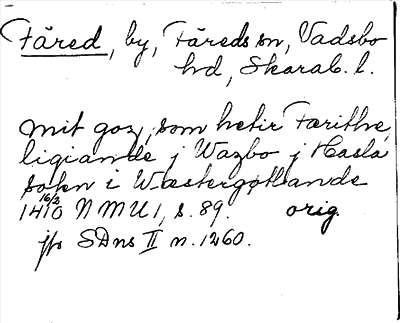 Fåred, by, Fåreds sn, Vadsbo
hd, Skarab. l.
mit goz, som hetir Færithe,
ligiande j Wazbo j Hasla
sokn i Wæstergøtlande
16/3
1410 NMU 1, s. 89. orig.
jfr SDns II n. 1260.